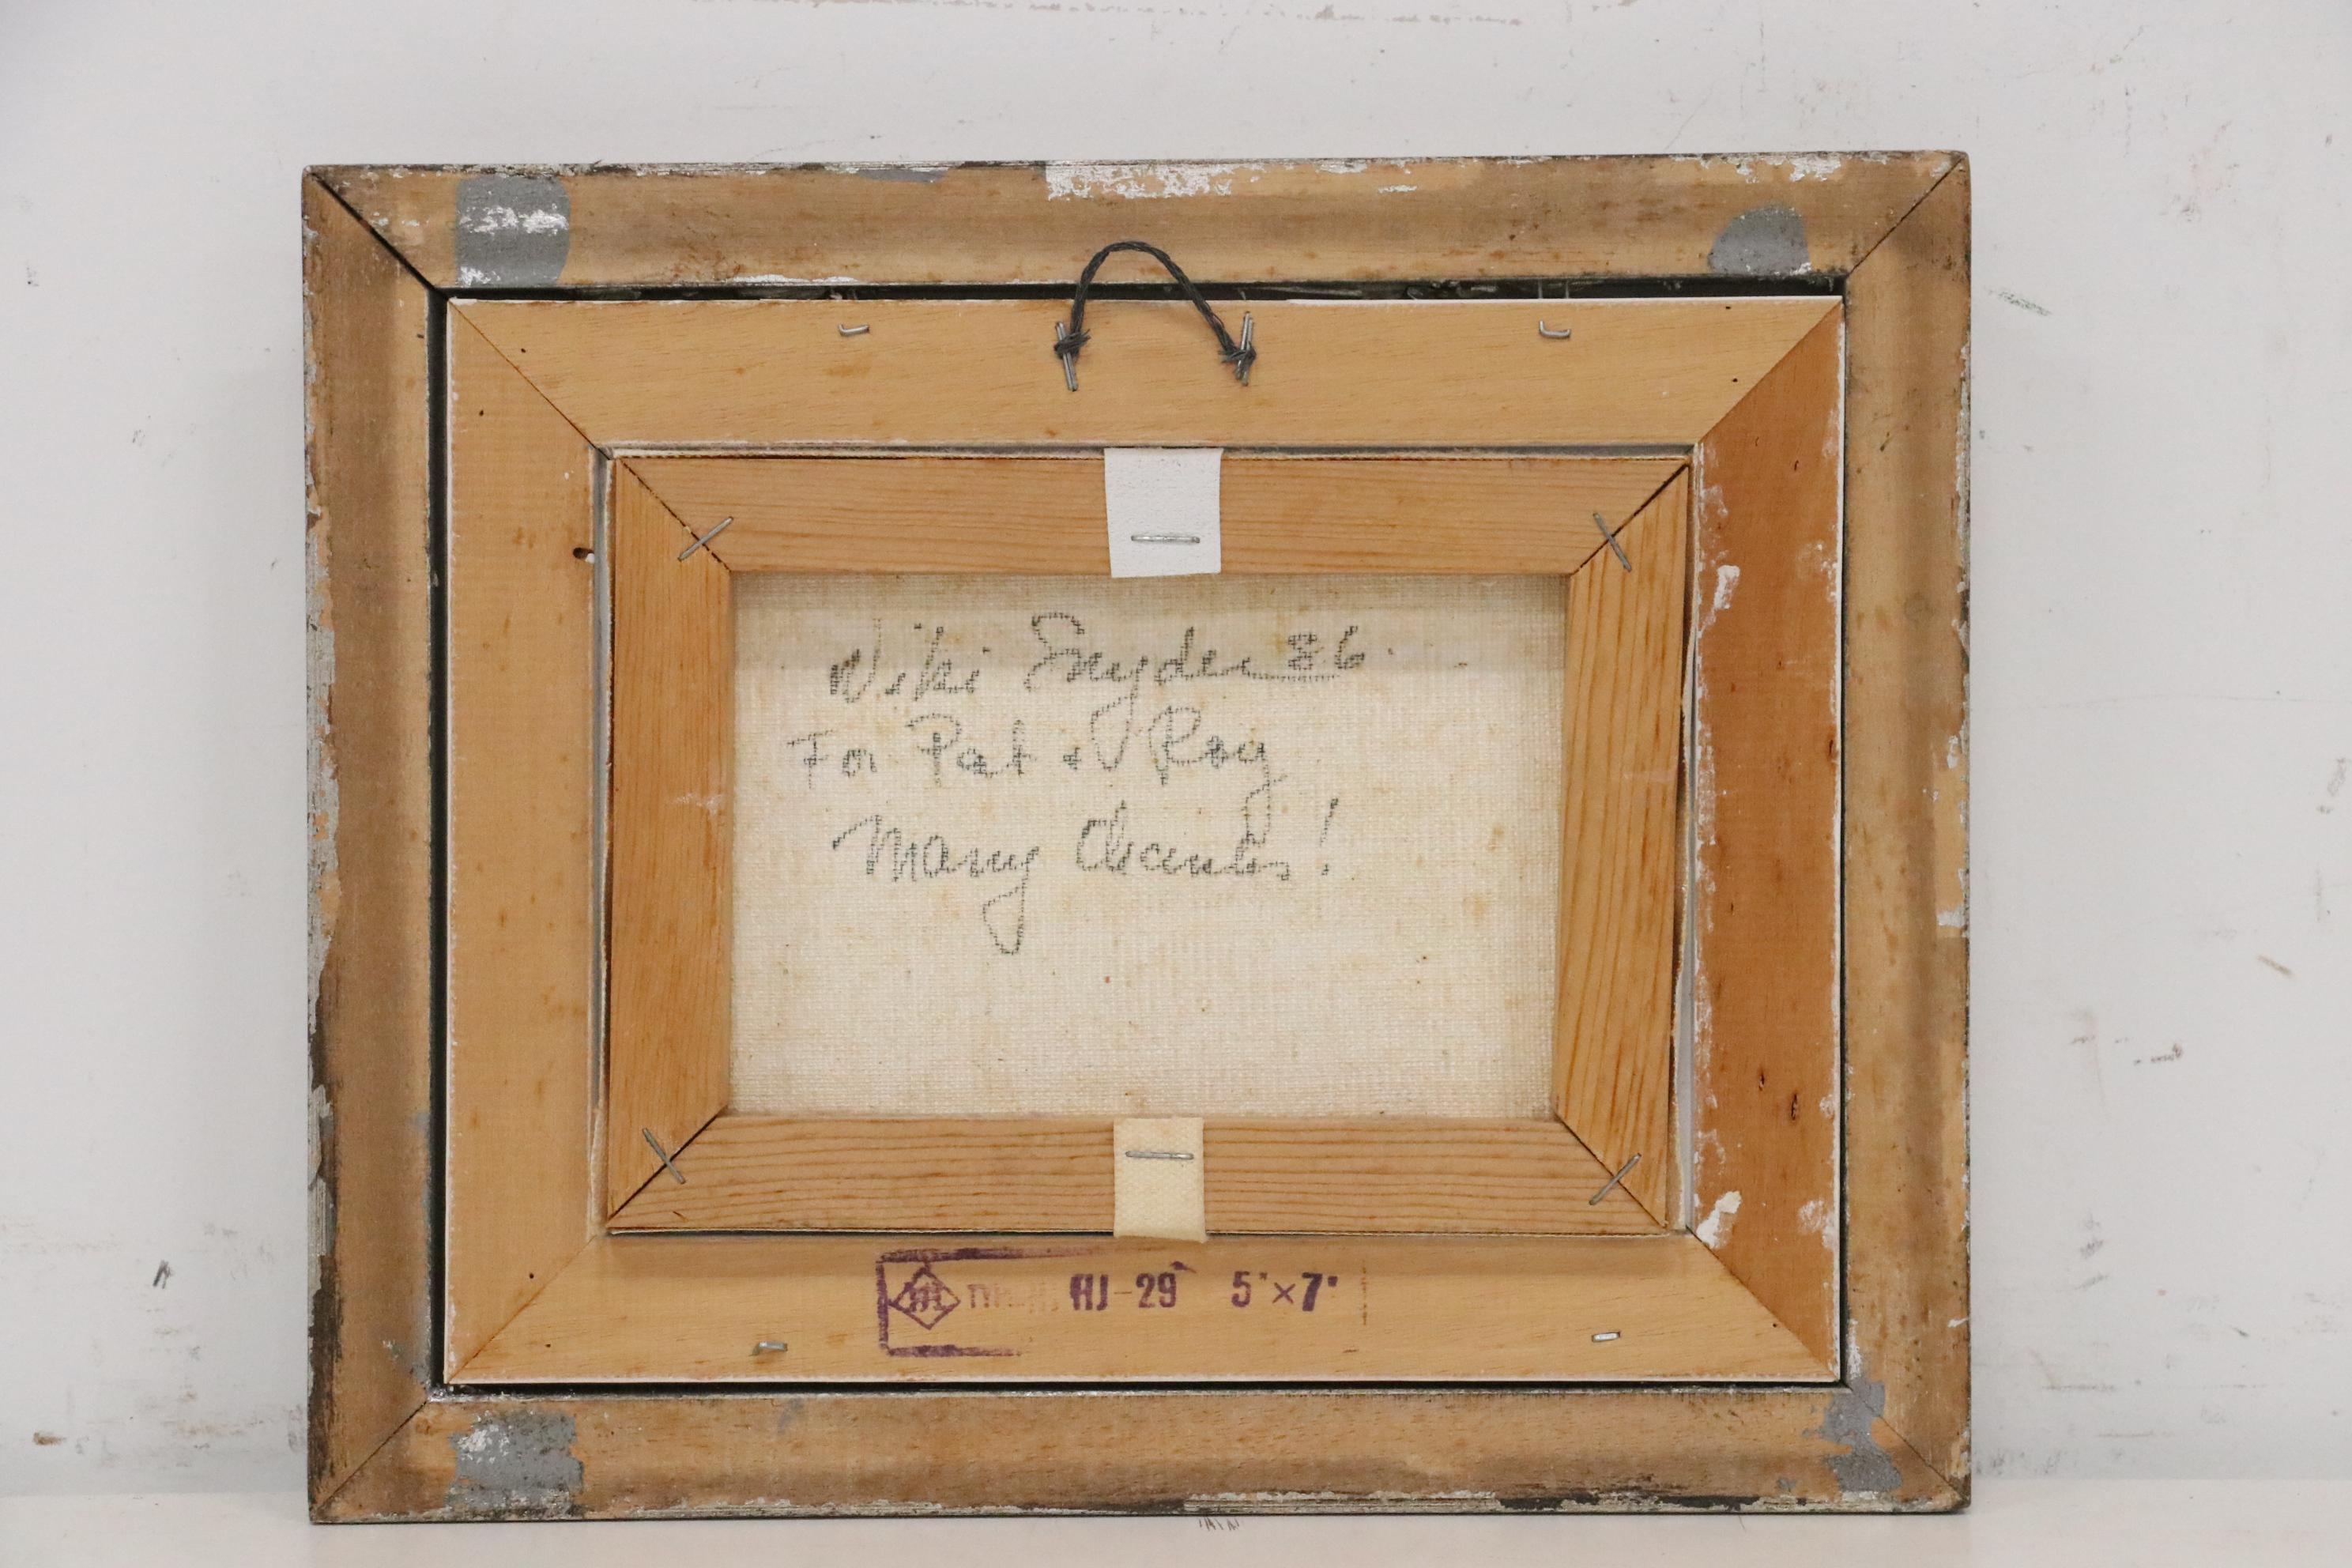 Viki Snyder 86
For Pat + Roy
Many thanks!
HJ-29 5"×7"